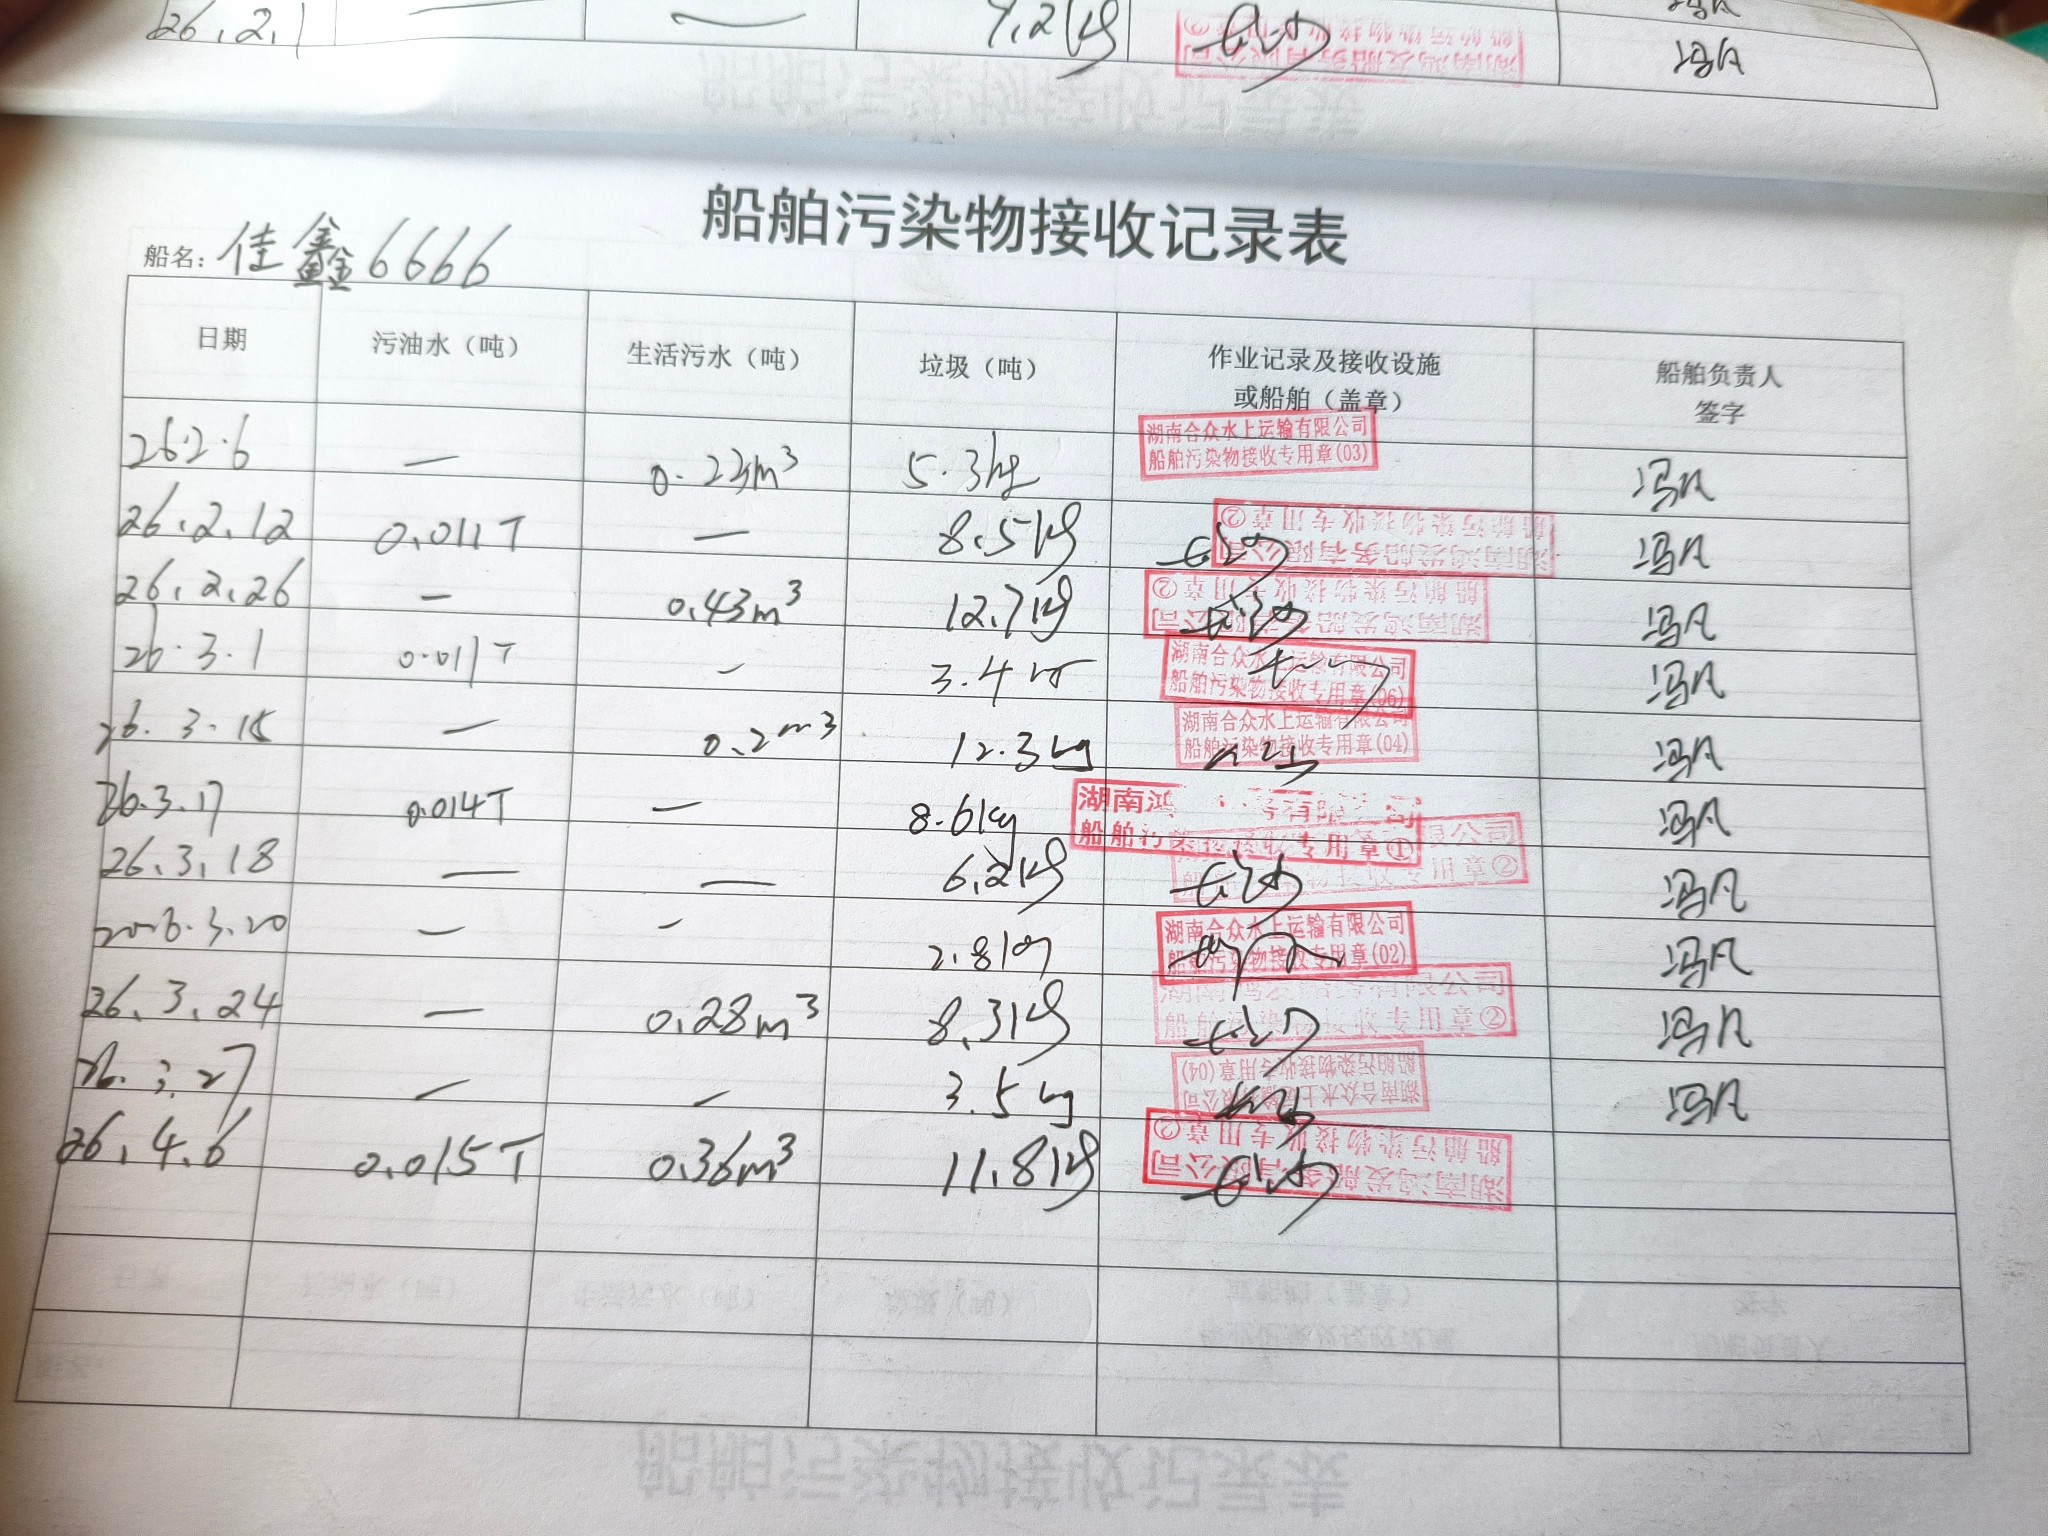 26.2.1 — — 7.2kg 冯凡
船舶污染物接收记录表
船名：佳鑫6666
日期 污油水（吨） 生活污水（吨） 垃圾（吨） 作业记录及接收设施 船舶负责人
或船舶（盖章） 签字
湖南合众水上运输有限公司
船舶污染物接收专用章(03)
26.2.6 — 0.22m³ 5.3kg 冯凡
船舶污染物接收专用章②
湖南鸿发船务有限公司
26.2.12 0.011T — 8.5kg 冯凡
船舶污染物接收专用章②
湖南鸿发船务有限公司
26.2.26 — 0.43m³ 12.7kg 冯凡
湖南合众水上运输有限公司
船舶污染物接收专用章(06)
26.3.1 0.011T — 3.4kg 冯凡
湖南合众水上运输有限公司
船舶污染物接收专用章(04)
26.3.15 — 0.2m³ 12.3kg 冯凡
湖南鸿 有限公司
船舶污染物接收专用章①
26.3.17 0.014T — 8.6kg 冯凡
限公司
船舶污染物接收专用章②
26.3.18 — — 6.2kg 冯凡
湖南合众水上运输有限公司
船舶污染物接收专用章(02)
2026.3.20 — — 2.8kg 冯凡
湖南鸿发船务有限公司
船舶污染物接收专用章②
26.3.24 — 0.28m³ 8.3kg 冯凡
船舶污染物接收专用章(04)
湖南合众水上运输有限公司
26.3.27 — — 3.5kg 冯凡
船舶污染物接收专用章②
湖南鸿发船务有限公司
26.4.6 0.015T 0.36m³ 11.8kg